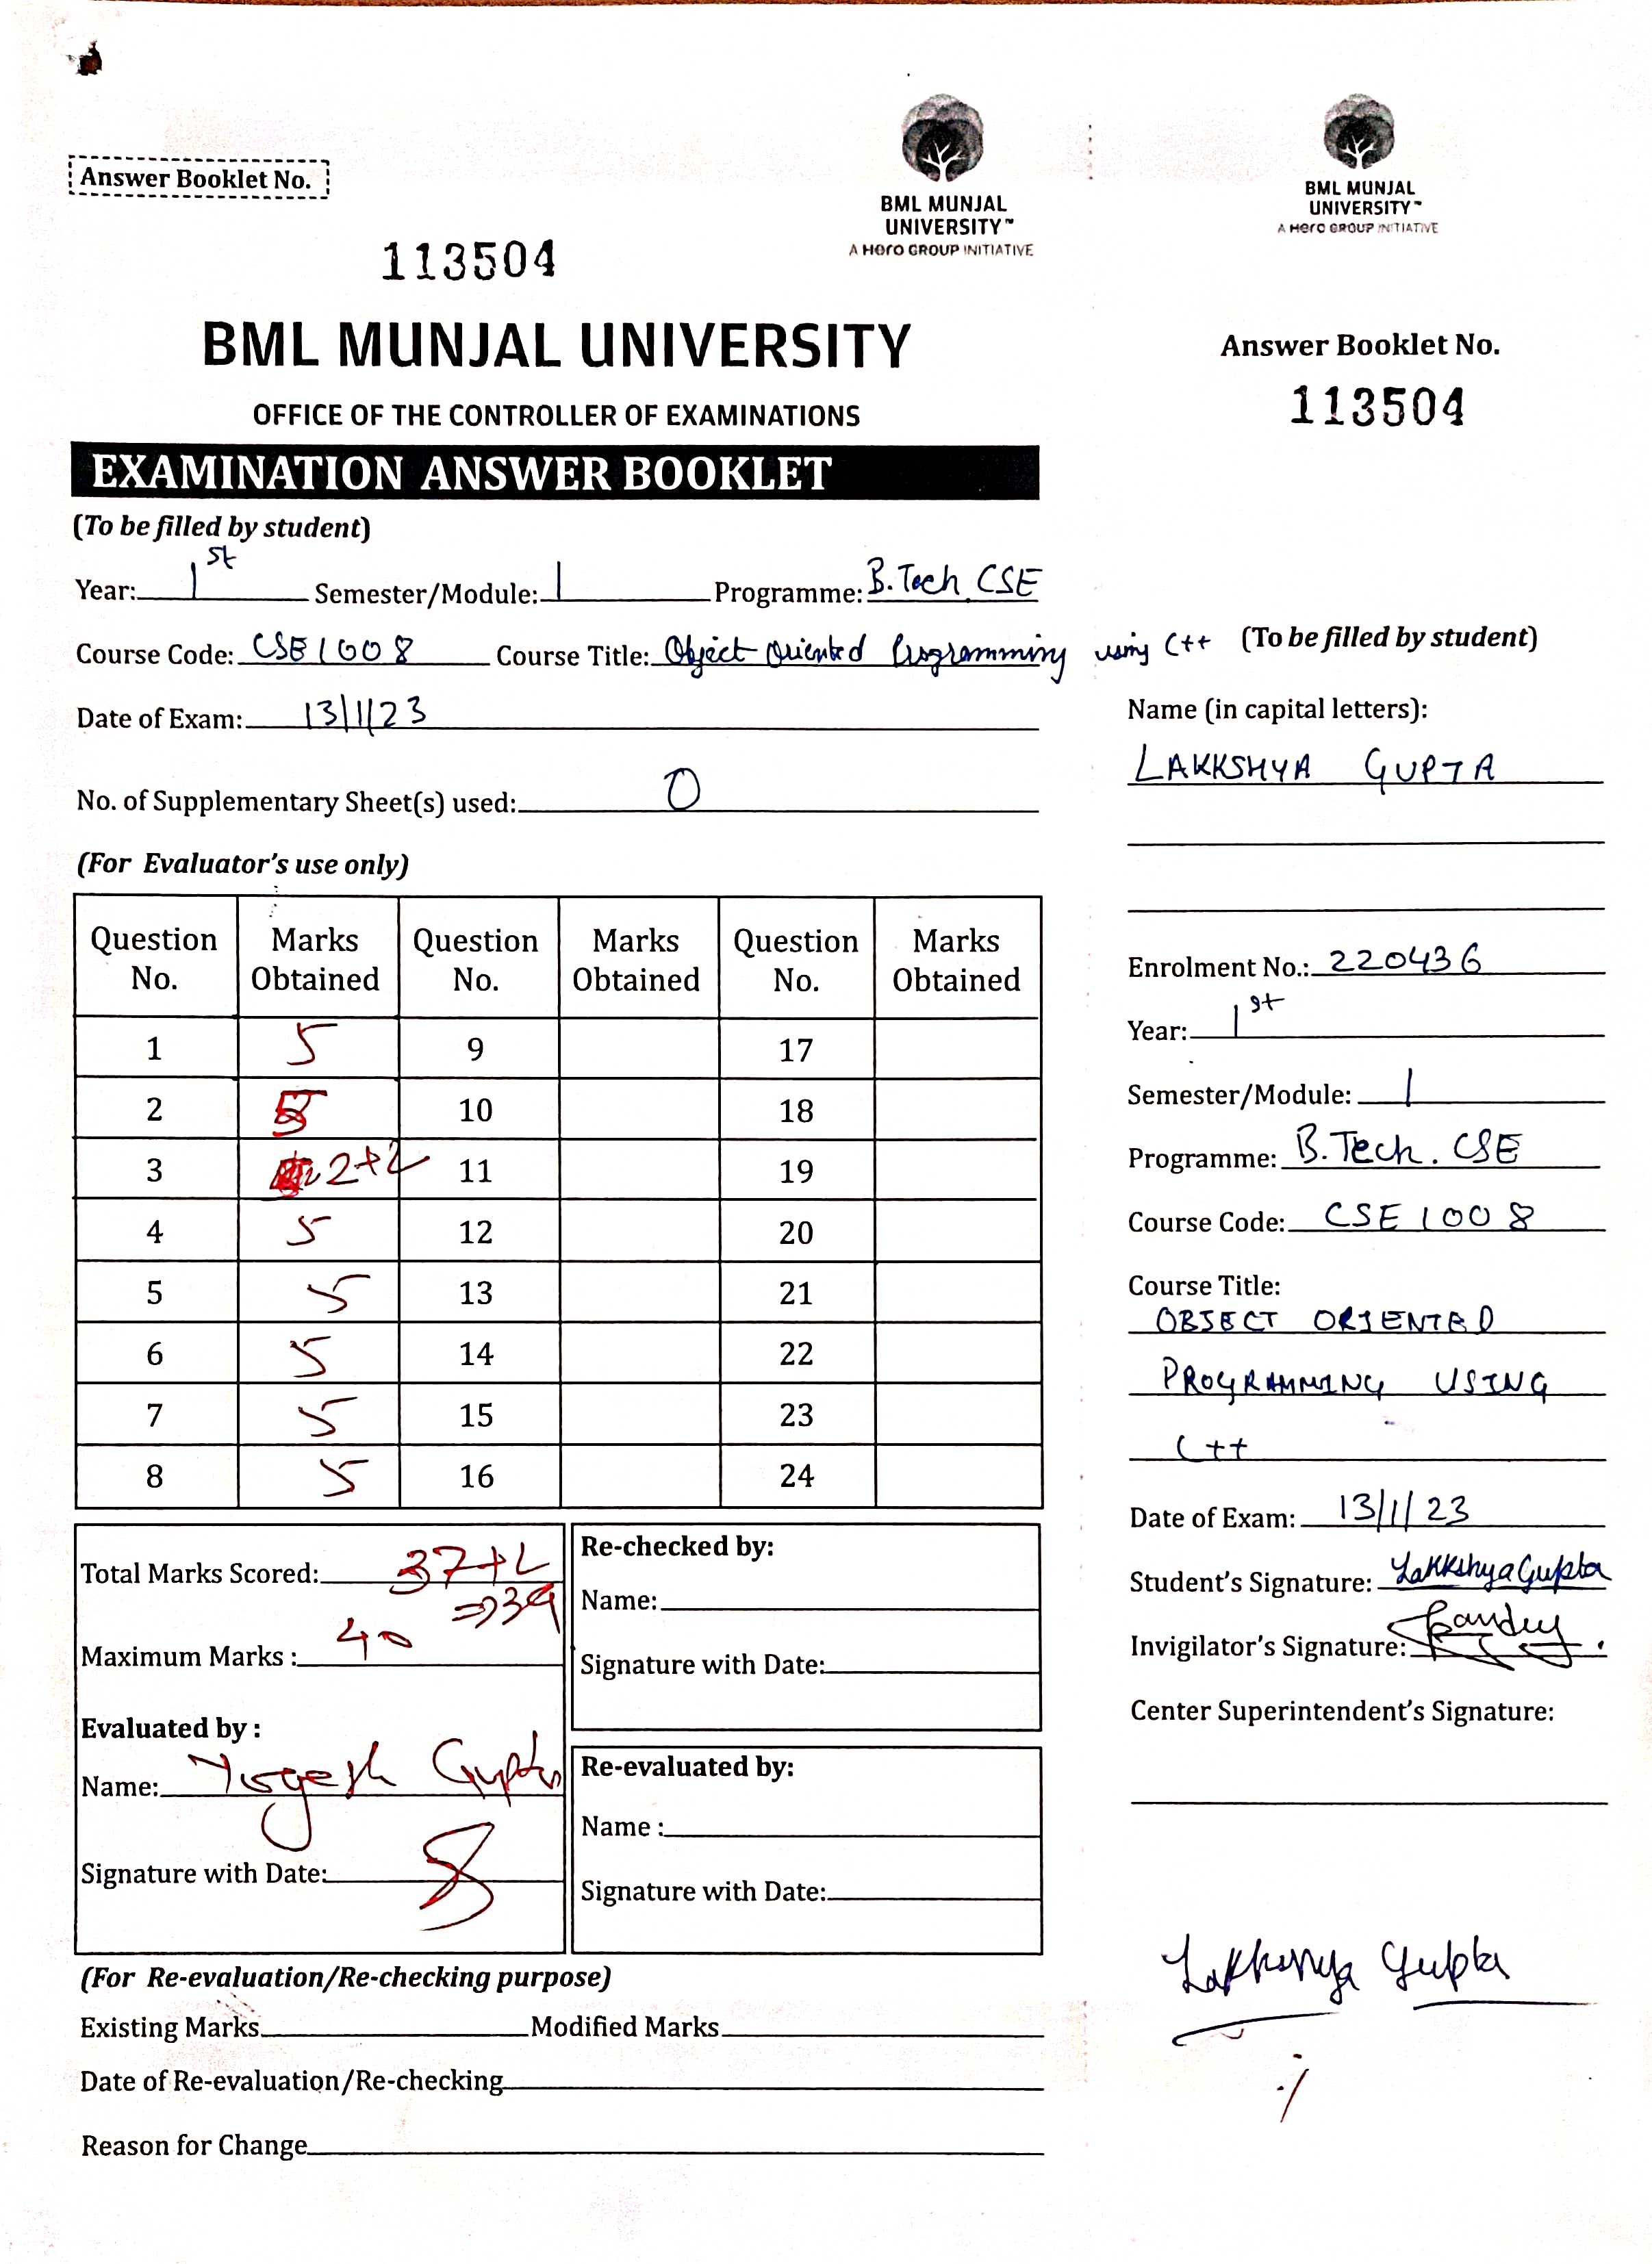 Answer Booklet No.
113504
BML MUNJAL
UNIVERSITY™
A Hero GROUP INITIATIVE
BML MUNJAL UNIVERSITY
OFFICE OF THE CONTROLLER OF EXAMINATIONS
EXAMINATION ANSWER BOOKLET
(To be filled by student)
Year: 1st Semester/Module: 1 Programme: B.Tech CSE
Course Code: CSE1008 Course Title: Object Oriented Programming using C++
Date of Exam: 13/1/23
No. of Supplementary Sheet(s) used: 0
(For Evaluator's use only)
Question No. Marks Obtained Question No. Marks Obtained Question No. Marks Obtained
1 5 9 17
2 5 10 18
3 2+2 11 19
4 5 12 20
5 5 13 21
6 5 14 22
7 5 15 23
8 5 16 24
Total Marks Scored: 37+2
=>39
Maximum Marks : 40
Evaluated by :
Name: Yogesh Gupta
Signature with Date:
Re-checked by:
Name:
Signature with Date:
Re-evaluated by:
Name :
Signature with Date:
(For Re-evaluation/Re-checking purpose)
Existing Marks Modified Marks
Date of Re-evaluation/Re-checking
Reason for Change
BML MUNJAL
UNIVERSITY™
A Hero GROUP INITIATIVE
Answer Booklet No.
113504
(To be filled by student)
Name (in capital letters):
LAKKSHYA GUPTA
Enrolment No.: 220436
Year: 1st
Semester/Module: 1
Programme: B.Tech. CSE
Course Code: CSE1008
Course Title:
OBJECT ORIENTED
PROGRAMMING USING
C++
Date of Exam: 13/1/23
Student's Signature: Lakkshya Gupta
Invigilator's Signature:
Center Superintendent's Signature:
Lakkshya Gupta